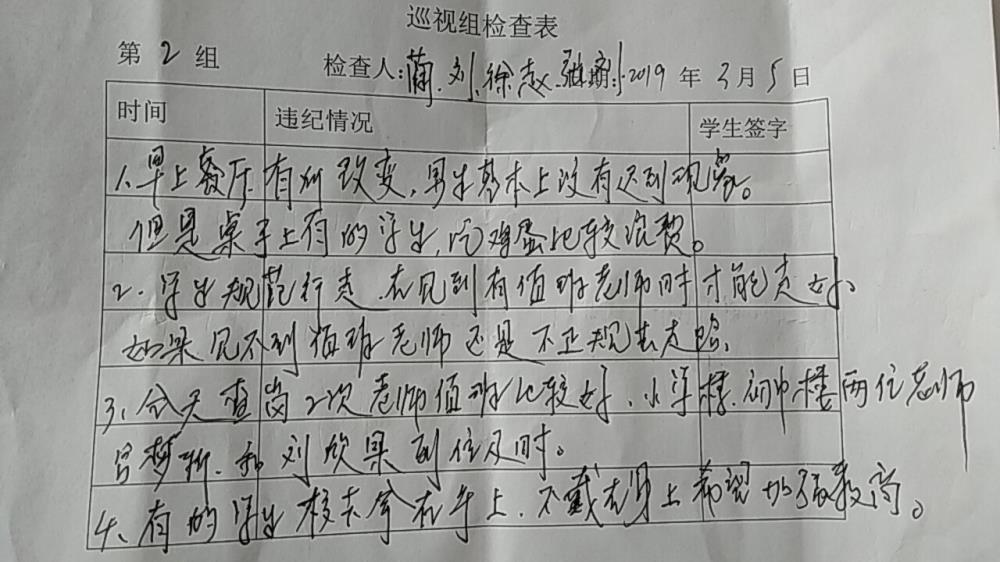 巡视组检查表
第 2 组 检查人: 刘、徐、赵、 2019 年 3 月 5 日
时间 违纪情况 学生签字
1、早上餐厅有所改变,男生基本上没有迟到现象。
但是桌子上有的学生,吃鸡蛋比较浪费。
2、学生规范行走,在见到有值班老师时才能走好、
如果见不到值班老师还是不正规去走路、
3、今天查岗2次老师值班比较好、小学楼、初中楼两位老师
吕梦 、和刘欣果到位及时。
4、有的学生校卡拿在手上、不戴在身上希望加强教育。